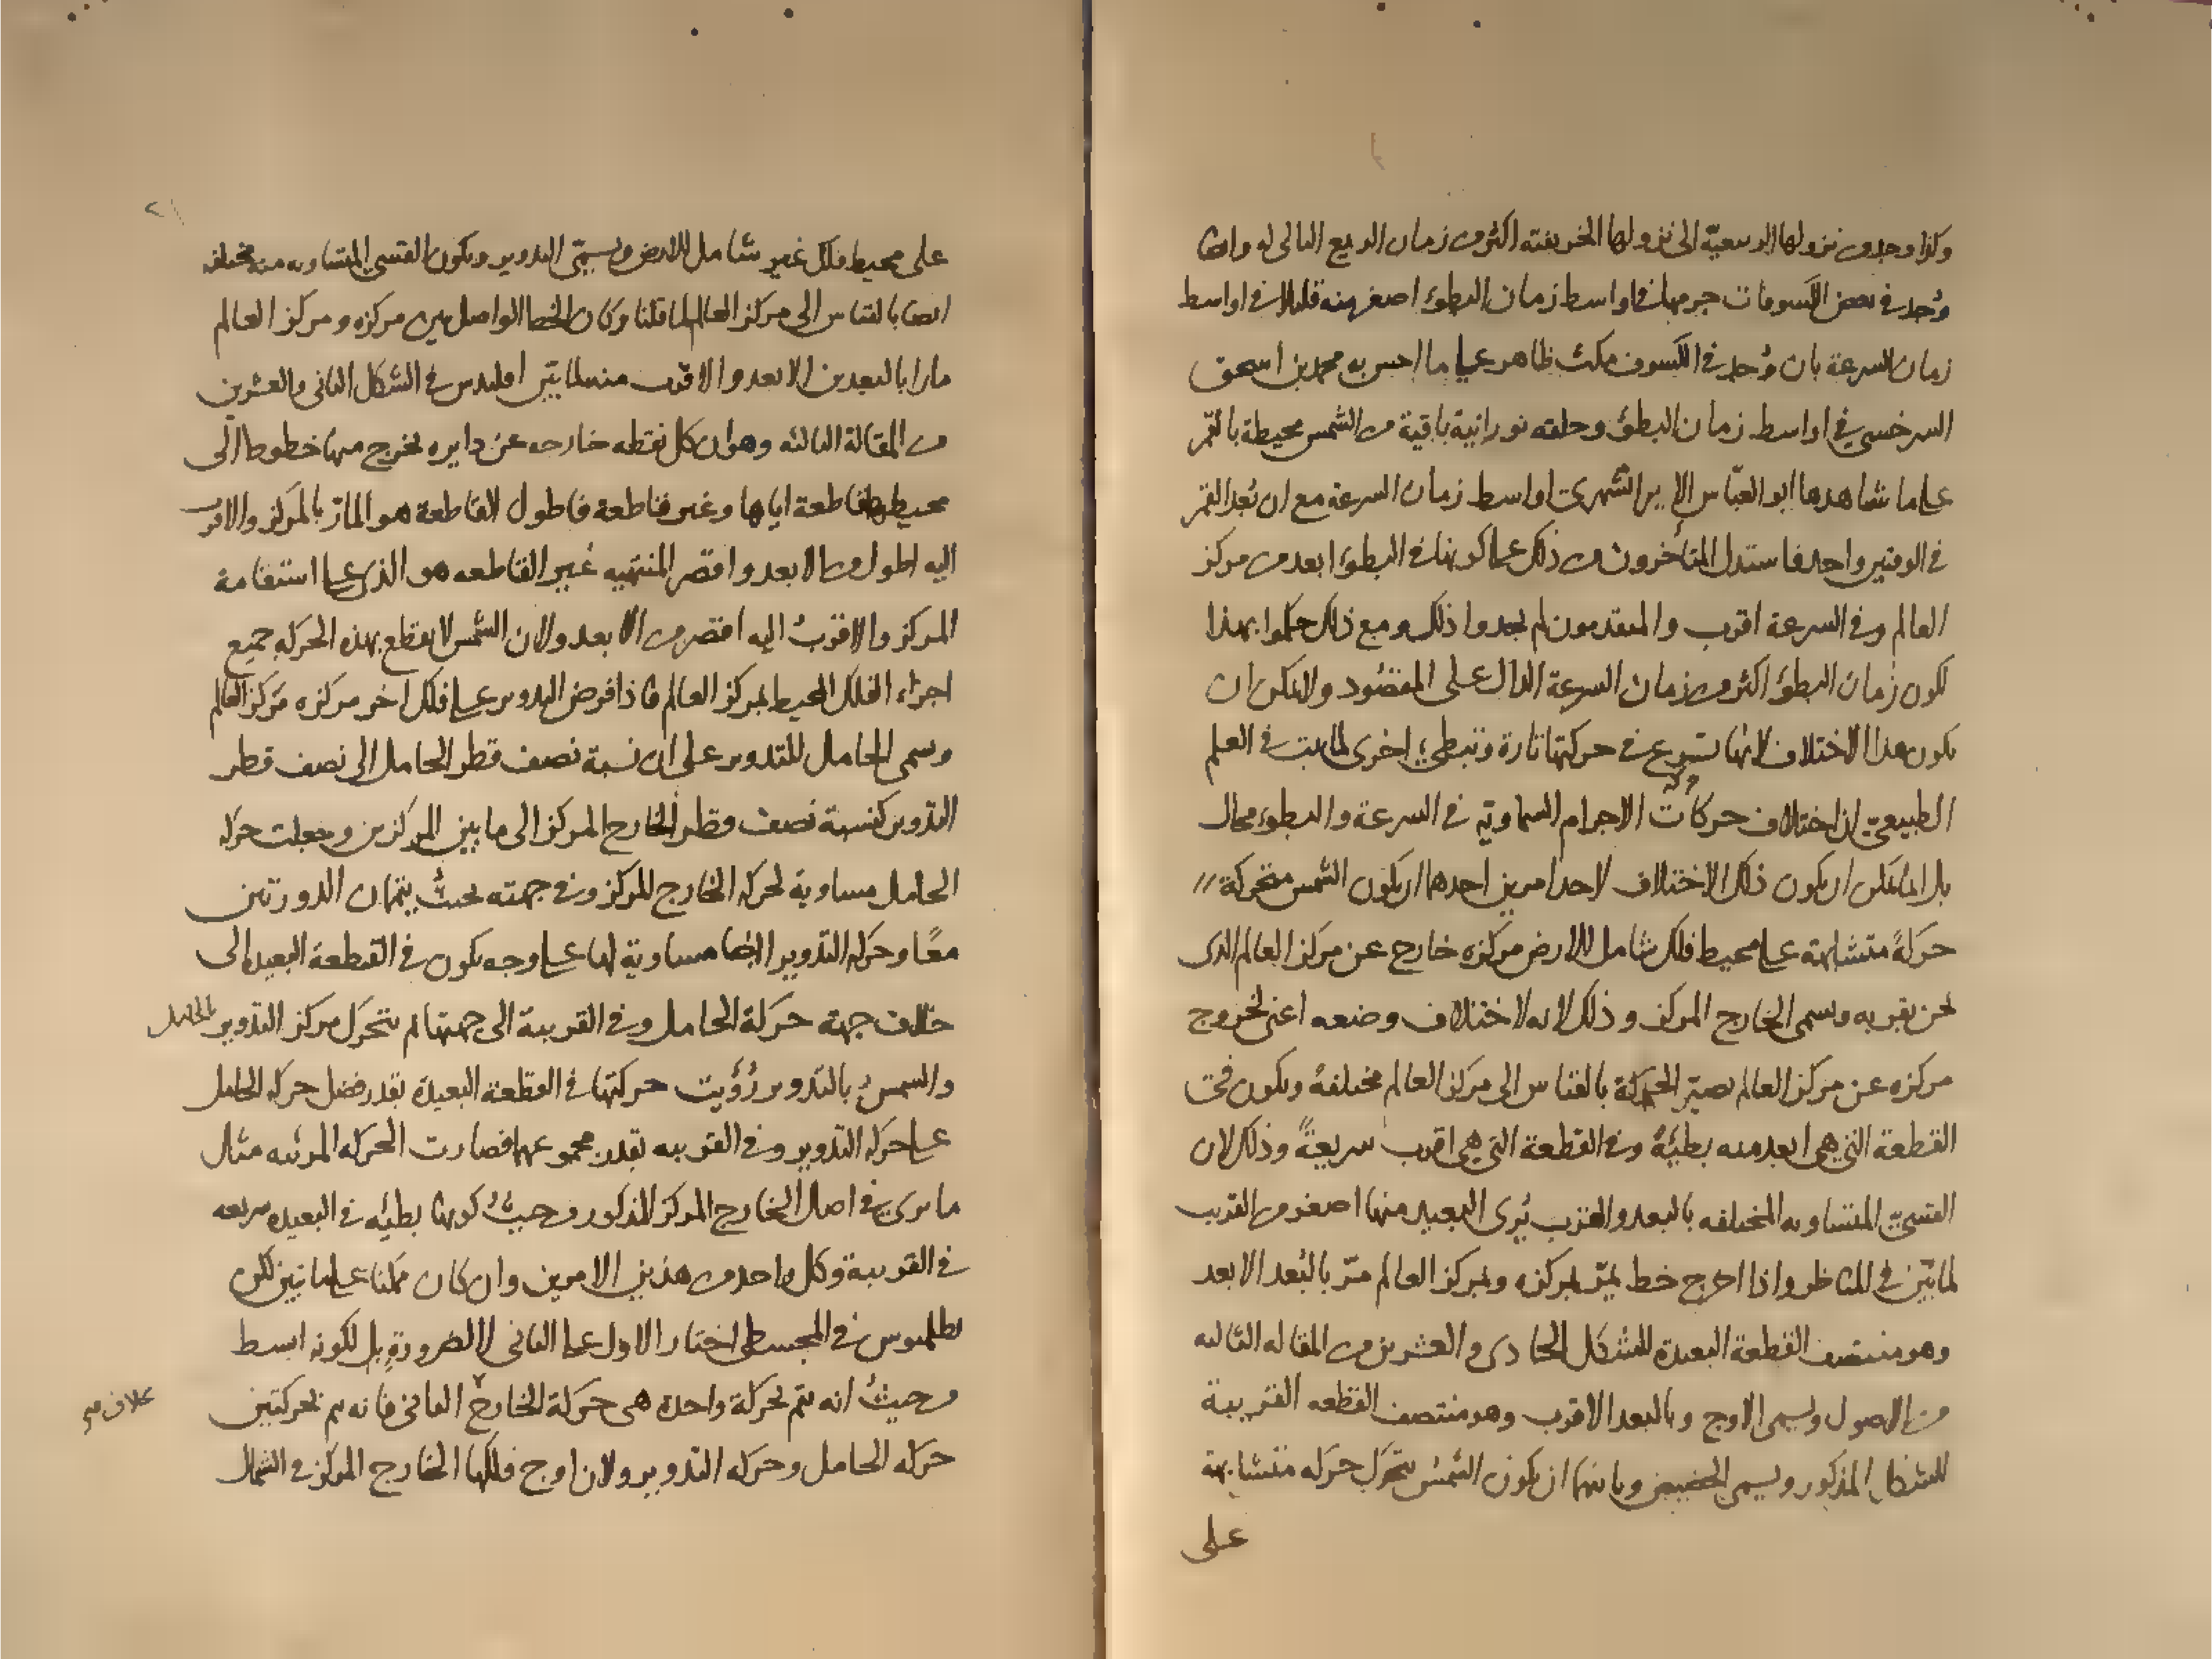 وكذا وجد من نزولها الربيعية الى نزولها الخريفية اكثر من زمان الربع التالى له وايضا
وُجد فى بعض الكسوفات جرمها فى اواسط زمان البطؤ اصغر منه قليلا فى اواسط
زمان السرعة بان وُجد فى الكسوف مكث ظاهر على ما احس به محمد بن اسحق
السرخسي فى اواسط زمان البطؤ وحلقه نورانية باقية من الشمس محيطة بالقمر
على ما شاهدها ابو العبّاس الايرانشهرى فى اواسط زمان السرعة مع ان بُعد القمر
فى الوقتين واحد فاستدل المتأخرون من ذلك على كونها فى البطؤ ابعد من مركز
العالم وفى السرعة اقرب والمتقدمون لم يجدوا ذلك ومع ذلك حكموا بهذا
لكون زمان البطؤ اكثر من زمان السرعة الدال على المقصُود ولا يمكن ان
يكون هذا الاختلاف لانها تسرع فى حركتها تارة وتبطئ اخرى لما ثبت فى العلم
الطبيعىّ ان اختلاف حركات الاجرام السماويّة فى السرعة والبطوء محال
بل انما يمكن ان يكون ذلك الاختلاف لاحد امرين احدهما ان يكون الشمس متحركة
حركةً متشابهة على محيط فلك شامل للارض مركزه خارج عن مركز العالم الذى
نحن بقربه ويسمى الخارج المركز وذلك لانه لاختلاف وضعه اعنى لخروج
مركزه عن مركز العالم تصيّر الحركة بالقياس الى مركز العالم مختلفة ويكون فى
القطعة التى هى ابعد منه بطيئةً وفى القطعة التى هى اقرب سريعةً وذلك لان
القسىّ المتساويه المختلفه بالبعد والقرب يُرى البعيد منها اصغر من القريب
لما تبيّن فى المناظر واذا اخرج خط يمرّ بمركزه وبمركز العالم مرّ بالبُعد الابعد
وهو منتصف القطعة البعيدة للشكل الحادى والعشرين من المقاله الثالثه
من الاصول ويسمى الاوج وبالبعد الاقرب وهو منتصف القطعه القريبة
للشكل المذكور ويسمى الحضيض وثانيهما ان يكون الشمس يتحرك حركه متشابهة
على
على محيط فلك غير شامل للارض ويسمىّ التدوير ويكون القسى المتساويه منه مختلفه
ايضا بالقياس الى مركز العالم لما قلنا وكان الخط الواصل بين مركزه ومركز العالم
مارا بالبعدين الابعد والاقرب منه لما بيّن اقليدس فى الشكل الثانى والعشرين
من المقالة الثالثه وهو ان كل نقطه خارجه عن دايره يخرج منها خطوط الى
محيطها قاطعة اياها وغير قاطعة فاطول القاطعة هو المارّ بالمركز والاقرب
اليه اطول من الابعد واقصر المنتهيه غير القاطعه هو الذى على استقامة
المركز والاقربُ اليه اقصر من الابعد ولان الشمس لا يقطع بهذه الحركه جميع
اجزاء الفلك المحيط بمركز العالم فاذا فرض التدوير على فلك اخر مركزه مركز العالم
وسمى الحامل للتدوير على ان نسبة نصف قطر الحامل الى نصف قطر
التدوير كنسبة نصف قطر الخارج المركز الى ما بين المركزين وجعلت حركه
الحامل مساوية لحركه الخارج المركز وفى جهته بحيث يتمّان الدورتين
معًا وحركه التدوير ايضا مساوية لها على وجه يكون فى القطعة البعيده الى
خلاف جهة حركة الحامل وفى القريبة الى جهتها ثم تحرّك مركز التدوير بالحامل
والشمسُ بالتدوير رُؤيت حركتها فى القطعة البعيدة بقدر فضل حركه الحامل
على حركه التدوير وفى القريبه بقدر مجموعهما فصارت الحركه المرئيه مثال
ما يرى فى اصل الخارج المركز المذكور من حيثُ كونها بطيئه فى البعيده سريعه
فى القريبة وكل واحد من هذين الامرين وان كان ممكنا على ما تبين لكن
بطلميوس فى المجسطى اختار الاول على الثانى لا لضرورةٍ بل لكونه ابسط
من حيثُ انه يتم بحركة واحدة هى حركة الخارج الثانى فانه يتم بحركتين
خلاف
حركه الحامل وحركه التدوير ولان اوج فلكها الخارج المركز فى الشمال